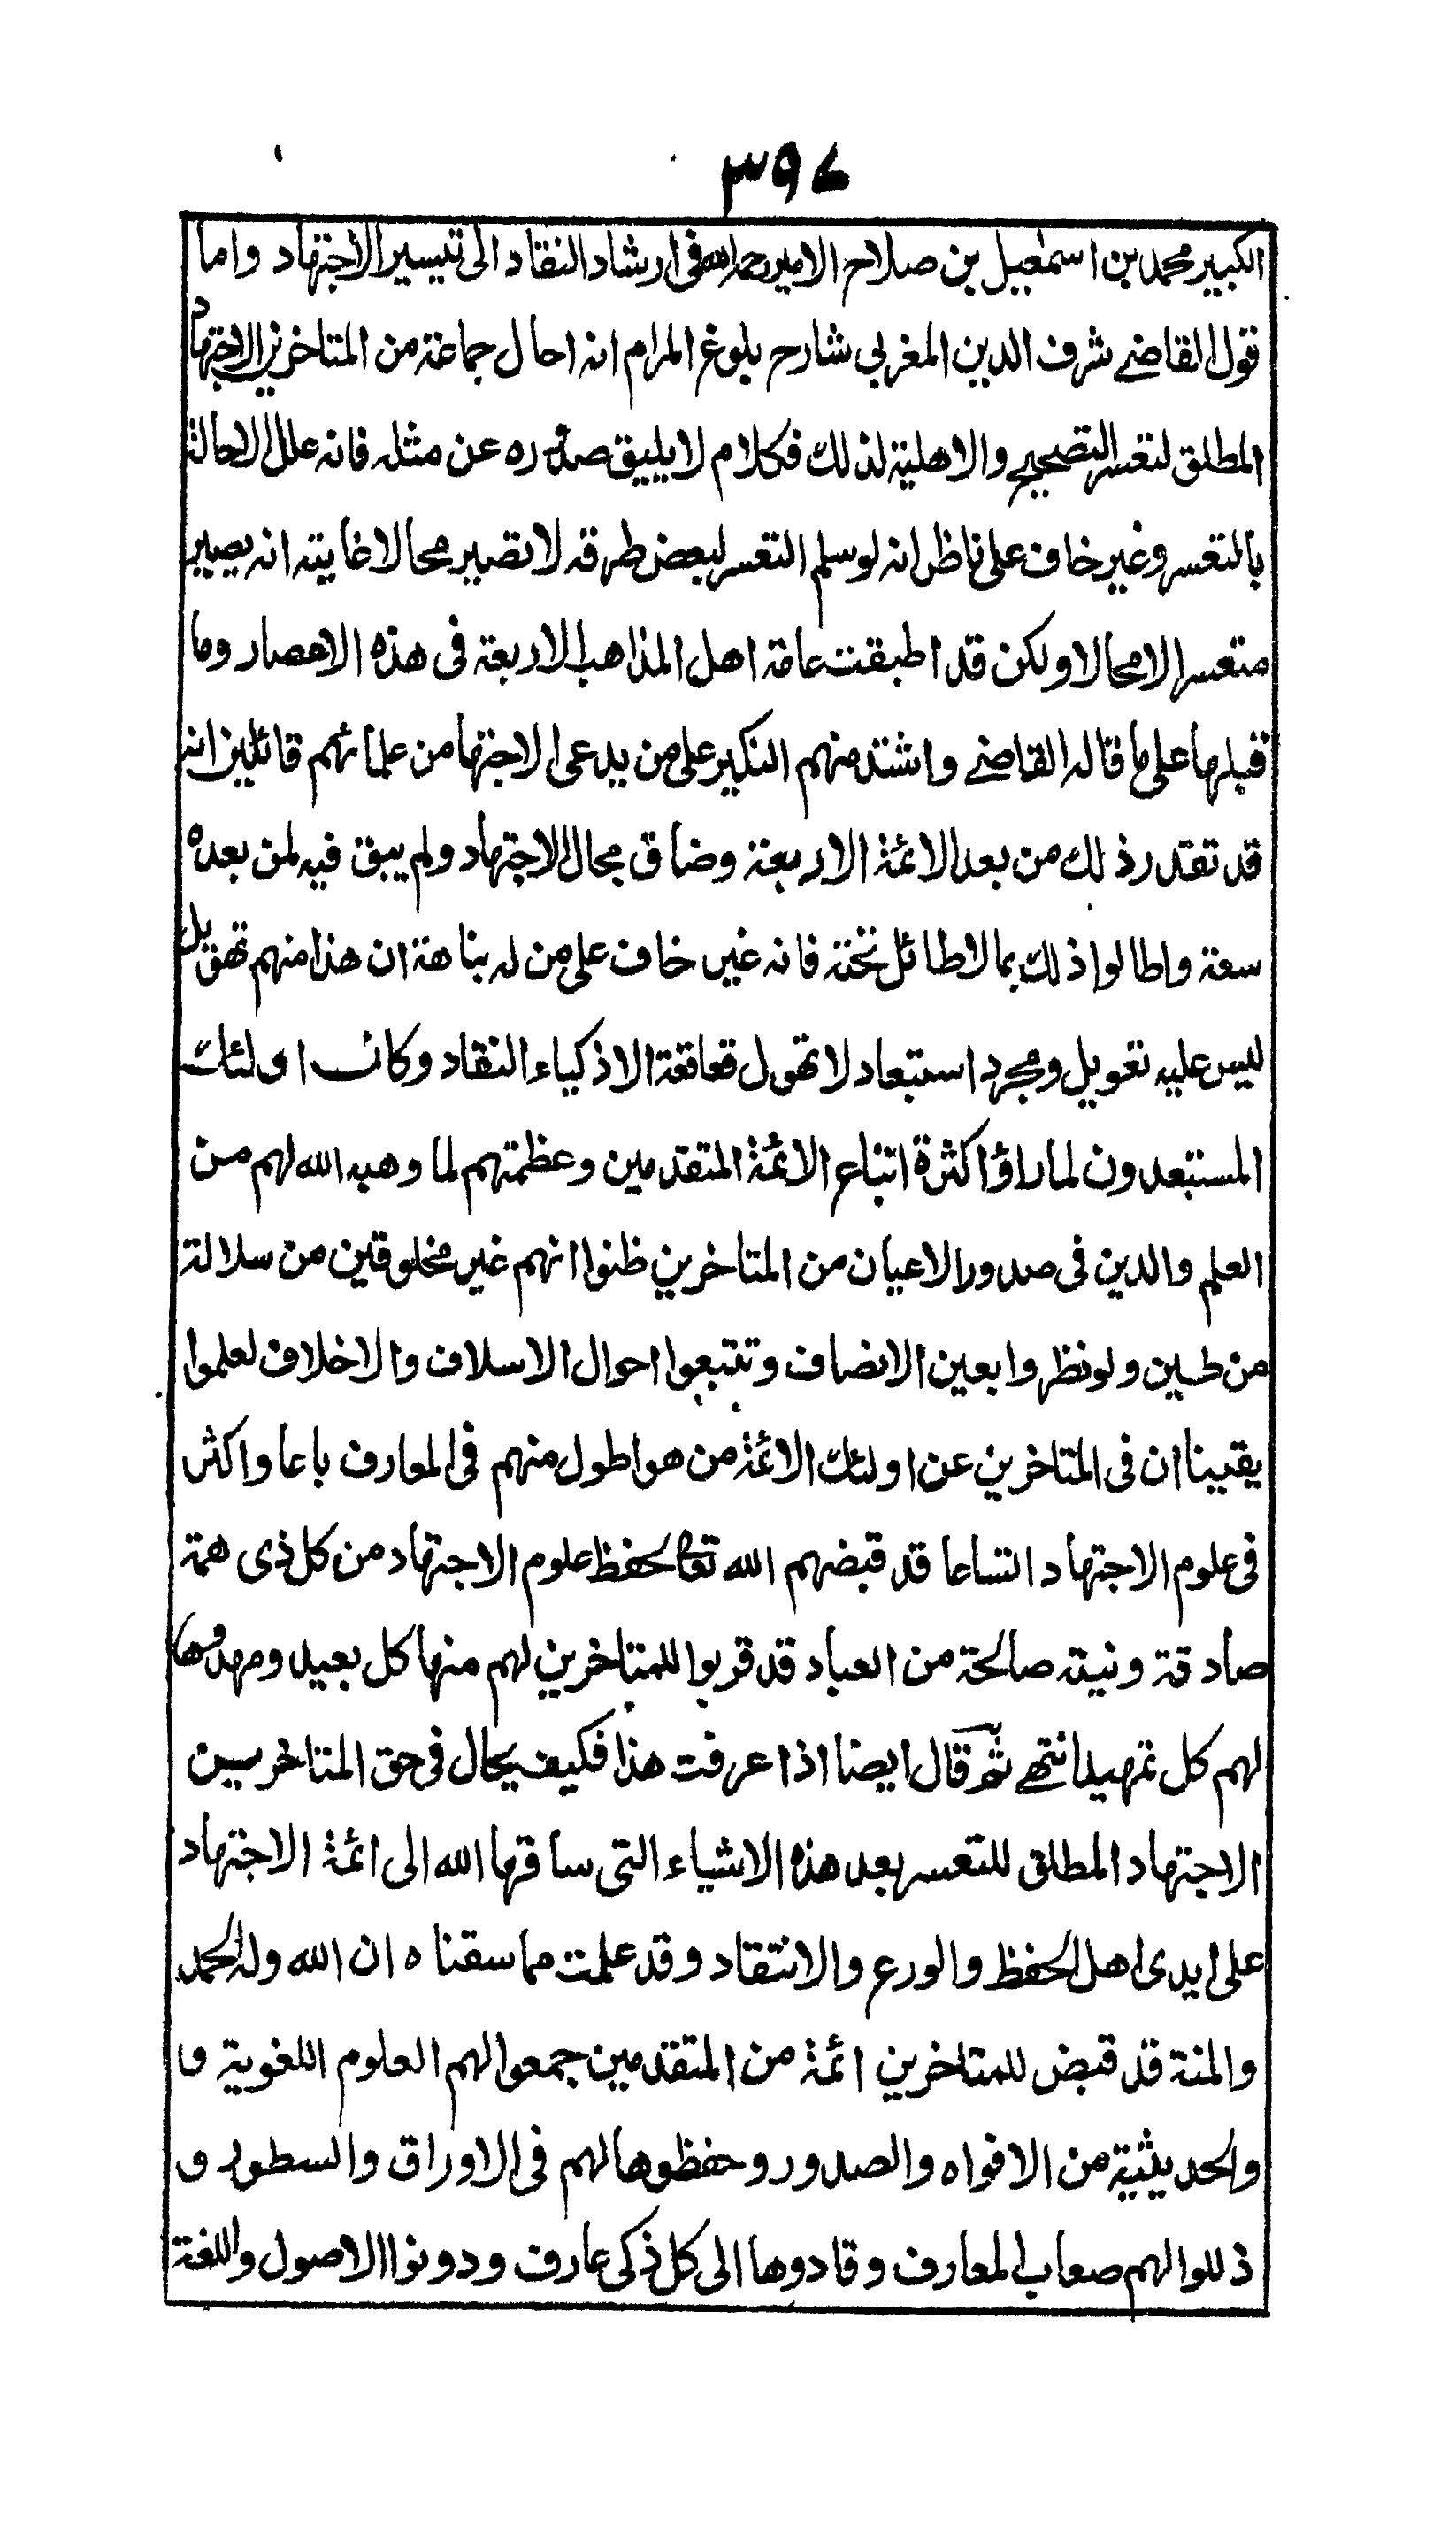 ٣٩٤
الكبير محمد بن اسمعيل بن صلاح الامير رحمه الله فى ارشاد النقاد الى تيسير الاجتهاد واما
قول القاضے شرف الدين المغربي شارح بلوغ المرام انه احال جماعة من المتاخرين الاجتهاد
المطلق لتعسر التصحيح والاهلية لذلك فكلام لا يليق صدوره عن مثله فانه علل الاحالة
بالتعسر وغير خاف على ناظر انه لو سلم التعسر لبعض طرقه لا تصير محالا غايته انه يصير
متعسرا لا محالا ولكن قد اطبقت عامة اهل المذاهب الاربعة فى هذه الاعصار وما
قبلها على ما قاله القاضے واشتد منهم النكير على من يدعى الاجتها من علمائهم قائلين انه
قد تقدر ذلك من بعد الائمة الاربعة وضاق مجال الاجتهاد ولم يبق فيه لمن بعده
سعة واطالوا ذلك بما لا طائل تحته فانه غير خاف على من له نباهة ان هذا منهم تهويل
ليس عليه تعويل ومجرد استبعاد لا تهول قعاقعة الاذكياء النقاد وكان اولئك
المستبعدون لما راؤا كثرة اتباع الائمة المتقدمين وعظمتهم لما وهبه الله لهم من
العلم والدين فى صدور الاعيان من المتاخرين ظنوا انهم غير مخلوقين من سلالة
من طين ولو نظروا بعين الانصاف وتتبعوا احوال الاسلاف والاخلاف لعلموا
يقينا ان فى المتاخرين عن اولئك الائمة من هو اطول منهم فى المعارف باعا واكثر
فى علوم الاجتهاد اتساعا قد قبضهم الله تعالى لحفظ علوم الاجتهاد من كل ذى همة
صادقة ونية صالحة من العباد قد قربوا للمتاخرين لهم منها كل بعيد ومهدوها
لهم كل تمهيد انتهے ثم قال ايضا اذا عرفت هذا فكيف يحال فى حق المتاخرين
الاجتهاد المطلق للتعسر بعد هذه الاشياء التى ساقها الله الى ائمة الاجتهاد
على ايدى اهل الحفظ والورع والانتقاد وقد علمت مما سقناه ان الله وله الحمد
والمنة قد قبض للمتاخرين ائمة من المتقدمين جمعوا لهم العلوم اللغوية و
والحديثية من الافواه والصدور وحفظوها لهم فى الاوراق والسطور و
ذللوا لهم صعاب المعارف وقادوها الى كل ذكى عارف ودونوا الاصول واللغة